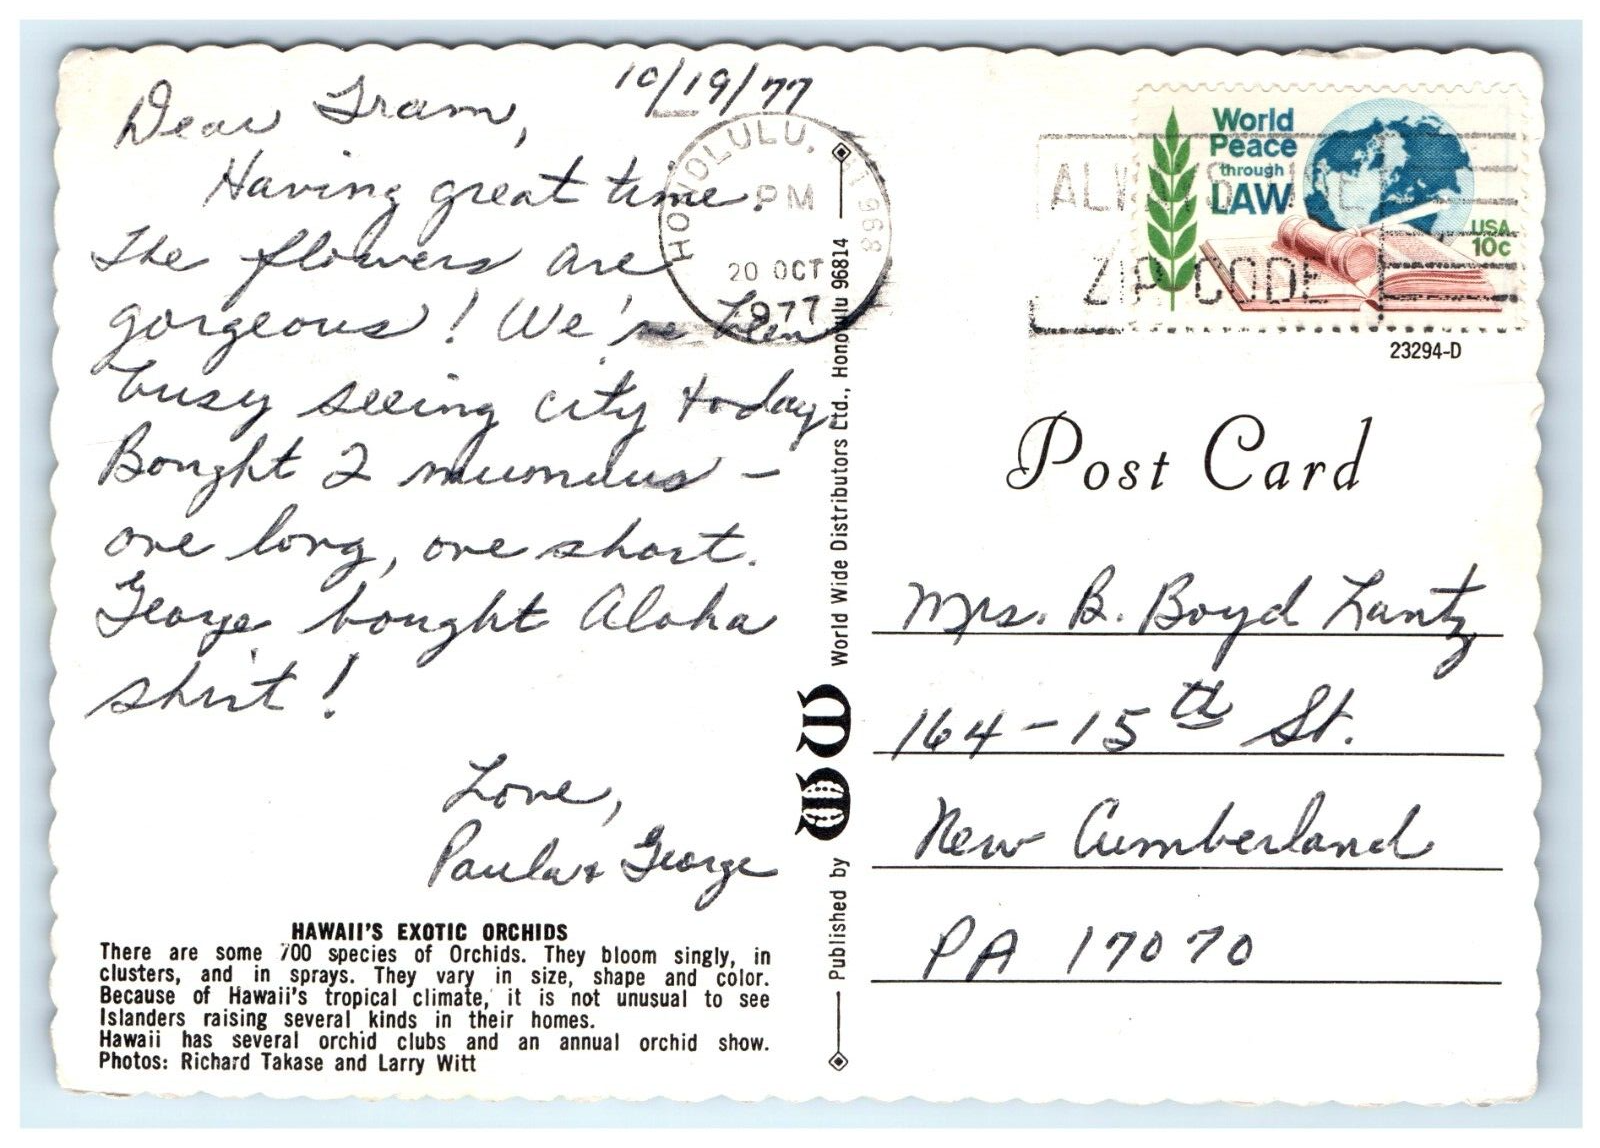 10/19/77
Dear Gram,
Having great time.
The flowers are
gorgeous! We've been
busy seeing city today.
Bought 2 muumuus -
one long, one short.
George bought Aloha
shirt!
Love,
Paula & George
HAWAII'S EXOTIC ORCHIDS
There are some 700 species of Orchids. They bloom singly, in
clusters, and in sprays. They vary in size, shape and color.
Because of Hawaii's tropical climate, it is not unusual to see
Islanders raising several kinds in their homes.
Hawaii has several orchid clubs and an annual orchid show.
Photos: Richard Takase and Larry Witt
HONOLULU, HI 968
PM
20 OCT
1977
Published by WW World Wide Distributors Ltd., Honolulu 96814
ALWAYS USE
ZIP CODE
World
Peace
through
LAW
USA
10c
23294-D
Post Card
Mrs. B. Boyd Lantz
164-15th St.
New Cumberland
PA 17070